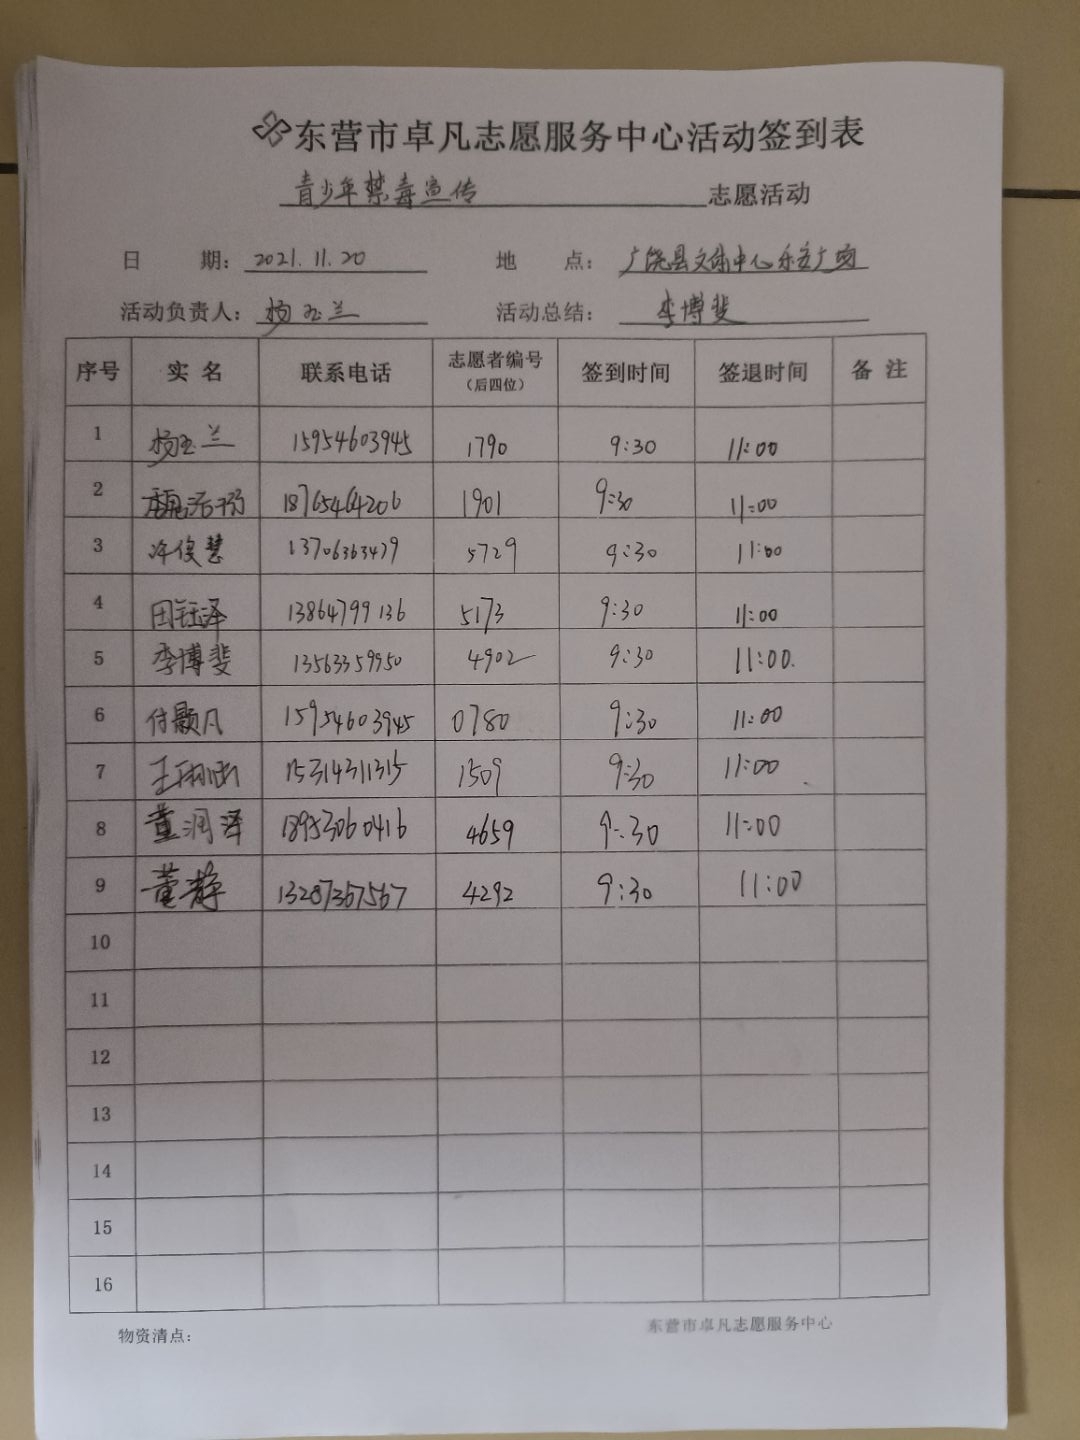 东营市卓凡志愿服务中心活动签到表
青少年禁毒宣传 志愿活动
日 期: 2021.11.20 地 点: 广饶县文体中心乐安广场
活动负责人: 杨玉兰 活动总结: 李博斐
序号 实 名 联系电话 志愿者编号(后四位) 签到时间 签退时间 备 注
1 杨玉兰 15954603945 1790 9:30 11:00
2 18765464206 1901 9:30 11:00
3 冷俊慧 13706363479 5729 9:30 11:00
4 田钰泽 13864799136 5173 9:30 11:00
5 李博斐 13563359950 4902 9:30 11:00.
6 付颢凡 15954603945 0780 9:30 11:00
7 15314311315 1509 9:30 11:00
8 董润泽 18953060416 4659 9:30 11:00
9 董静 13287367567 4292 9:30 11:00
10
11
12
13
14
15
16
物资清点: 东营市卓凡志愿服务中心